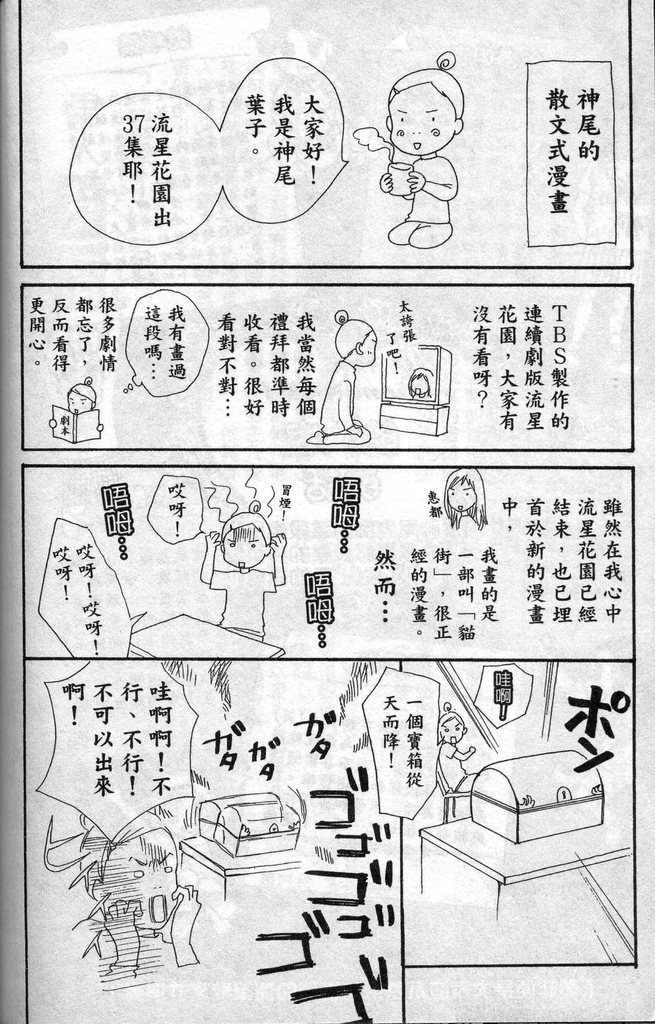 神尾的
散文式漫畫
大家好！
我是神尾
葉子。
流星花園出
37集耶！
TBS製作的
連續劇版流星
花園，大家有
沒有看呀？
太誇張
了吧！
我當然每個
禮拜都準時
收看。很好
看對不對…
我有畫過
這段嗎…
很多劇情
都忘了，
反而看得
更開心。
劇本
雖然在我心中
流星花園已經
結束，也已埋
首於新的漫畫
中，
惠都
我畫的是
一部叫「貓
街」，很正
經的漫畫。
然而…
唔呣…
唔呣…
冒煙！
哎呀！
唔呣…
哎呀！哎呀！
哎呀！
ポン
哇啊！
一個寶箱從
天而降！
ガタ
ガタ
ガタ
ゴゴゴゴゴゴ
哇啊啊！不
行、不行！
不可以出來
啊！